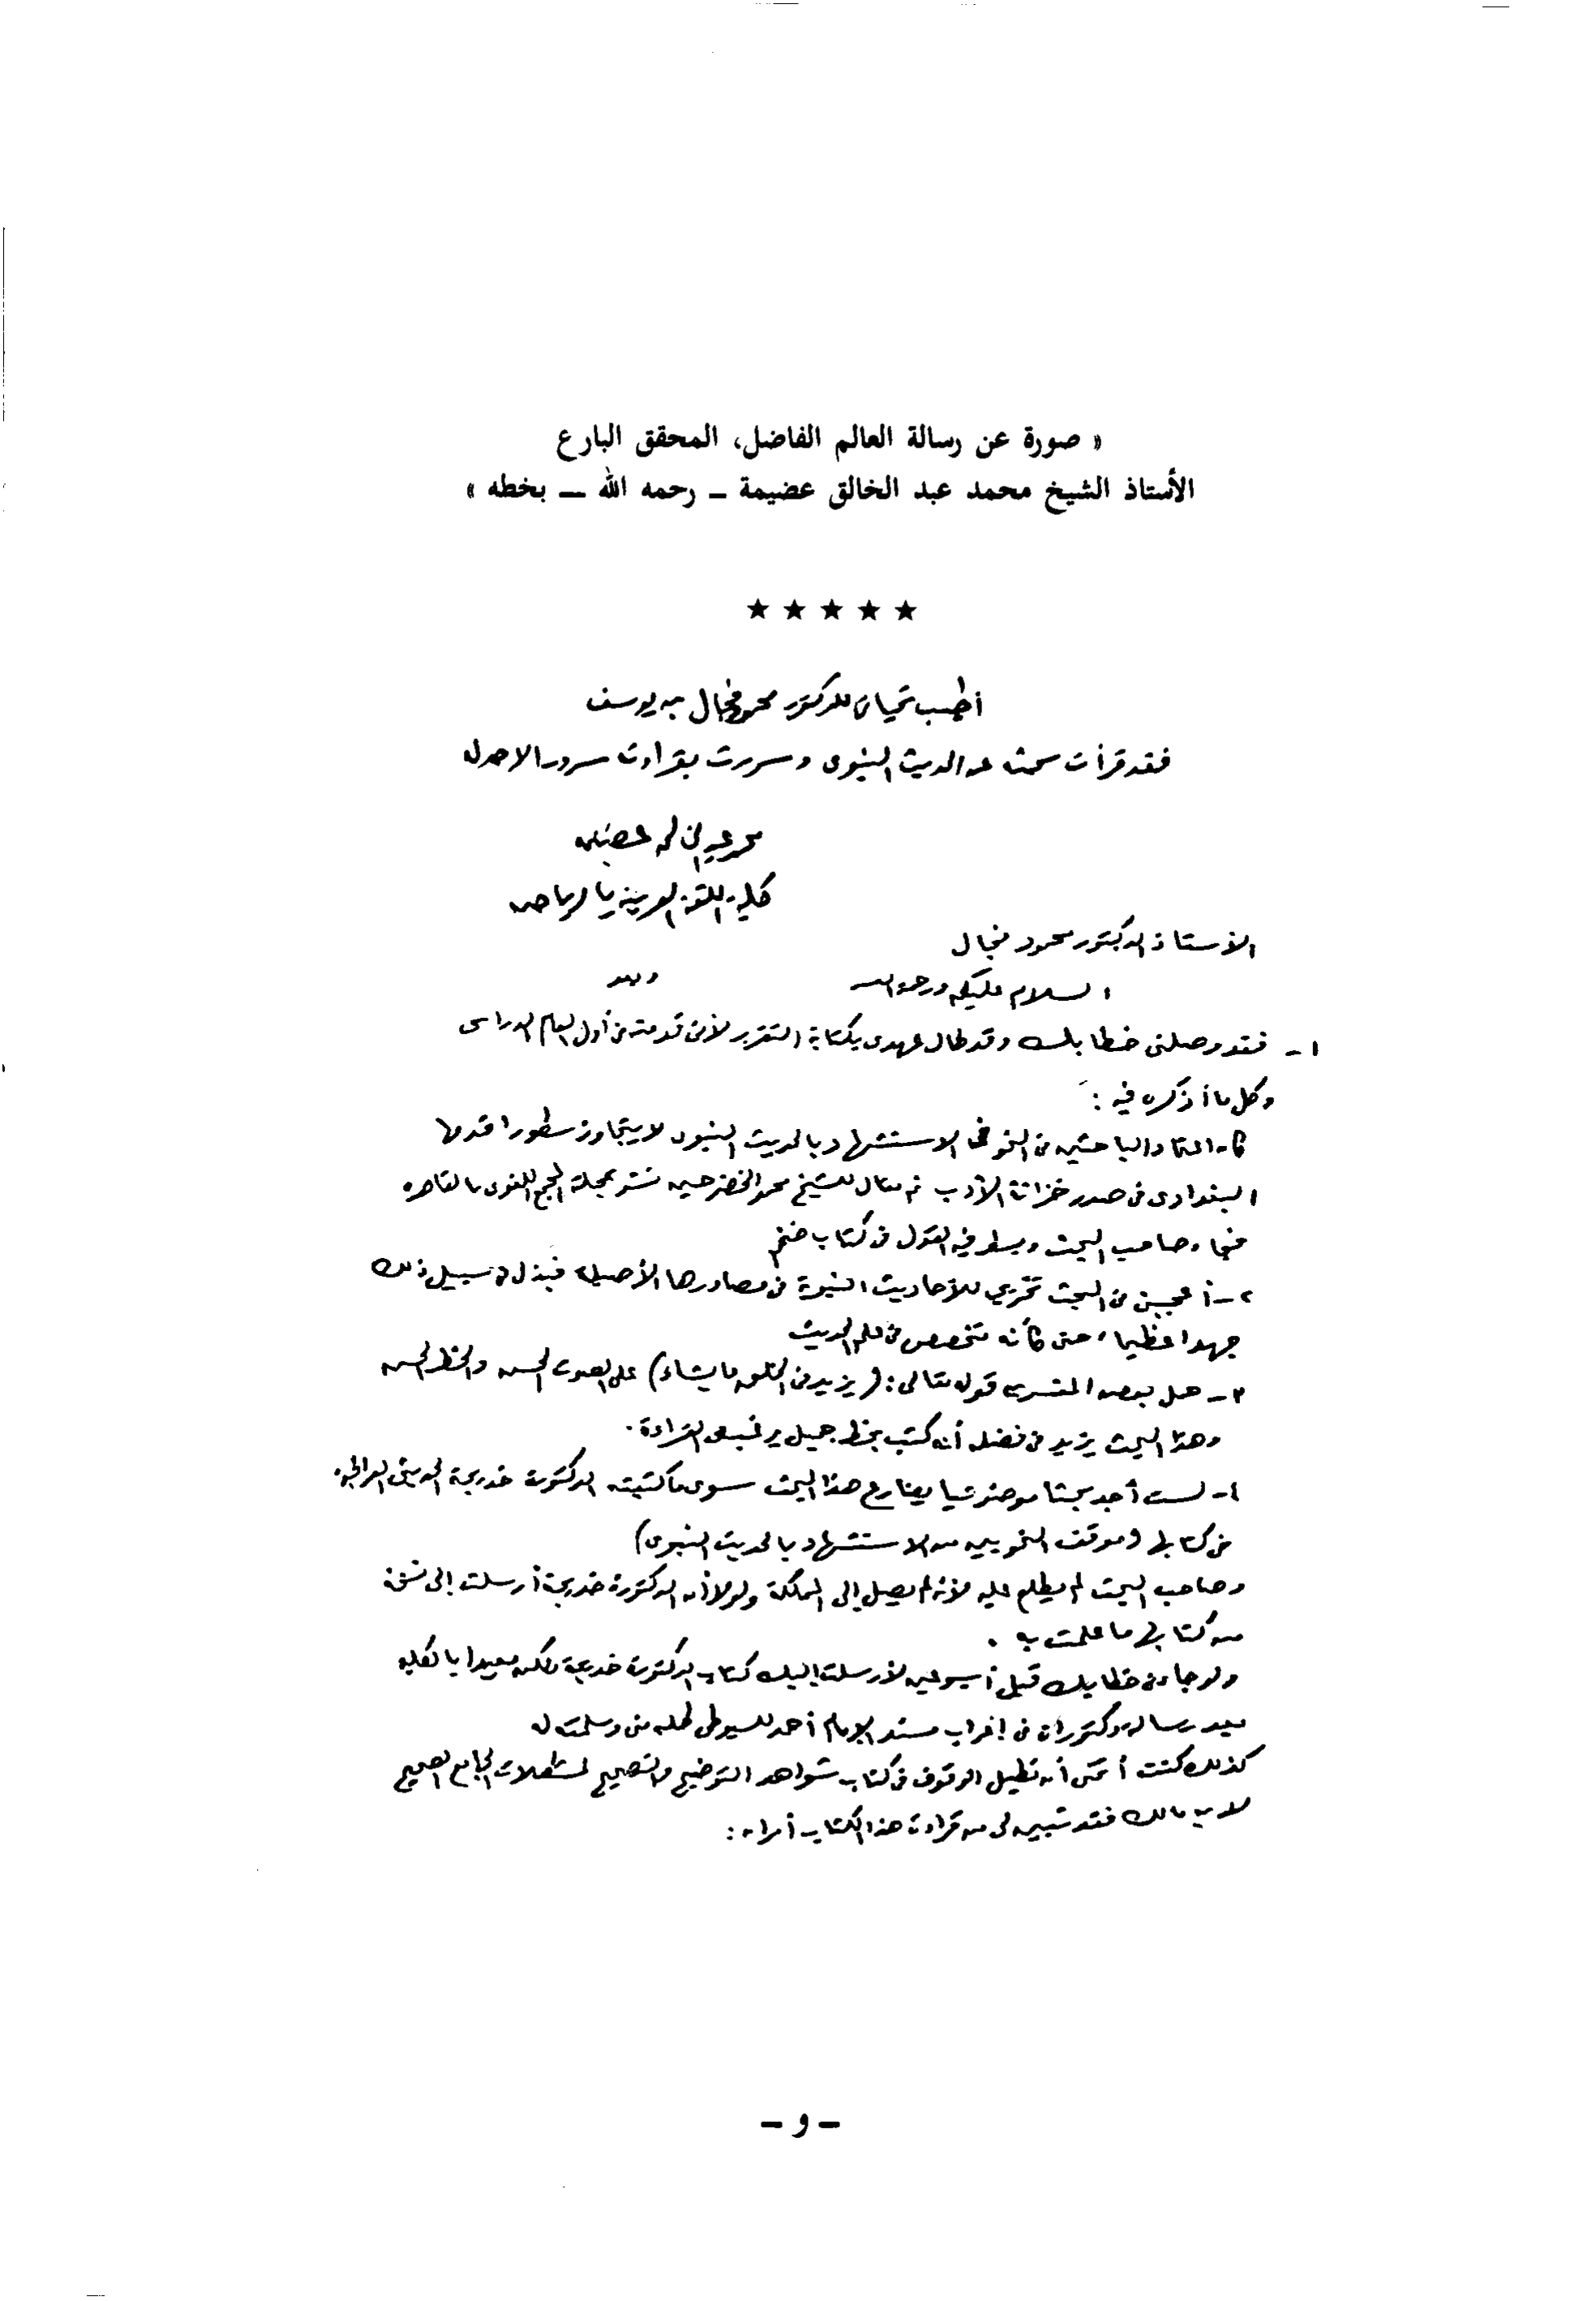 « صورة عن رسالة العالم الفاضل، المحقق البارع
الأستاذ الشيخ محمد عبد الخالق عضيمة ـ رحمه الله ــ بخطه »
★ ★ ★ ★ ★
أطيب تحياتى للدكتور محمود فجال بن يوسف
فقد قرأت بحثه عن الحديث النبوى وسررت بقراءته سرورا لا حد له
محمد عبد الخالق عضيمة
كلية اللغة العربية بالرياض
الأستاذ الدكتور محمود فجال
السلام عليكم ورحمة الله وبعد
١ - فقد وصلنى خطابك وقد طال عهدى بكتابة التقرير لأنى قدمته فى أول العام الدراسى
وكل ما أذكره فيه :
كان اعتماد الباحثين من النحو فى الاستشهاد بالحديث النبوى لا يتجاوز سطورا قدمها
البغدادى فى صدر خزانة الأدب ثم مقال للشيخ محمد الخضر حسين نشر بمجلة المجمع اللغوى بالقاهرة
فجاء صاحب البحث وبسط فيه القول فى كتاب ضخم
٢ - أعجبنى من البحث تخريجه للأحاديث النبوية من مصادرها الأصيلة فبذل فى سبيل ذلك
جهدا عظيما، حتى كأنه متخصص فى علم الحديث
٣ - حمل بعض المفسرين قوله تعالى : (يزيد فى الخلق ما يشاء) على الصوت الحسن والخط الحسن
وهذا البحث يزيد من فضله أنه كتب بخط جميل يرغب فى القراءة .
٤ - لست أجد بحثا موضوعيا يضارع هذا البحث سوى ما كتبته الدكتورة خديجة الحديثى العراقية
فى كتابها (موقف النحويين من الاستشهاد بالحديث النبوى)
وصاحب البحث لم يطلع عليه لأنه لم يصل إلى المملكة ولولا أن الدكتورة خديجة أرسلت إلى نسخة
من كتابها ما علمت به .
ولو جاءنى خطابك قبل أسبوعين لأرسلت إليك كتاب الدكتورة خديجة ولكن معيدا بالكلية
يعد رسالة دكتوراه فى إعراب مسند الإمام أحمد للسيوطى طلبه منى وسلمته له
كذلك كنت أتمنى أن تطيل الوقوف فى كتاب شواهد التوضيح والتصحيح لمشكلات الجامع الصحيح
لابن مالك فقد تبين لى من قراءة هذا الكتاب أمران :
- و -